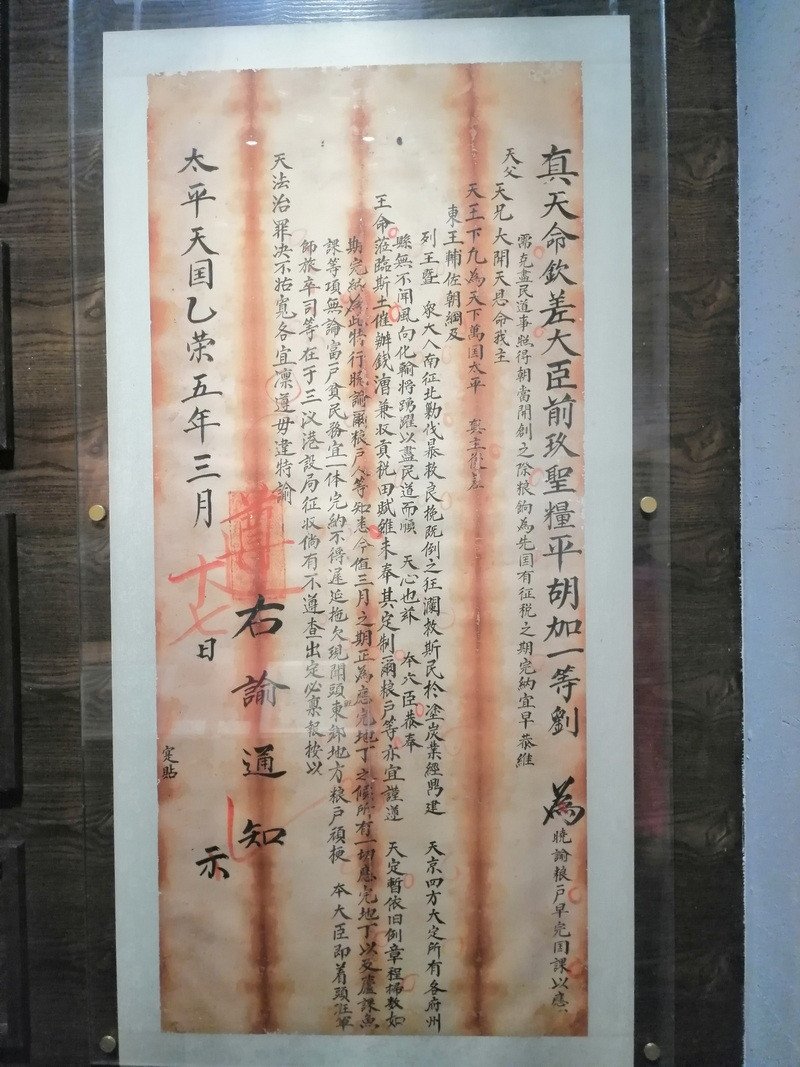 真天命欽差大臣前玖聖糧平胡加一等劉　為
曉諭粮戶早完囯課以應
需克盡民道事照得朝當開創之際粮餉為先囯有征税之期完納宜早恭維
天父天兄大開天恩命我主
天王下凡為天下萬囯太平真主
東王輔佐朝綱及
列王暨　眾大人南征北勦伐暴救良挽既倒之狂瀾救斯民於塗炭業經興建　天京四方大定所有各府州
縣無不聞風向化輸將踴躍以盡民道而順　天心也茲　本大臣恭奉
王命蒞臨斯土催辦錢漕兼收貢税田賦雖未奉其定制爾粮戶等亦宜謹遵　天定暫依旧例章程掃數如
期完納為此特行曉諭爾粮戶人等知悉今值三月之期正為應完地丁之候所有一切應完地丁以及蘆課魚
課等項無論富戶貧民務宜一体完納不得遲延拖欠現聞頭東鄉地方粮戶頑梗　本大臣即着頭
師旅卒司等在于三汊港設局征收倘有不遵查出定必稟報按以
天法治罪决不姑寬各宜凛遵毋違特諭
右諭通知
太平天囯乙榮五年三月十七日　示
定貼